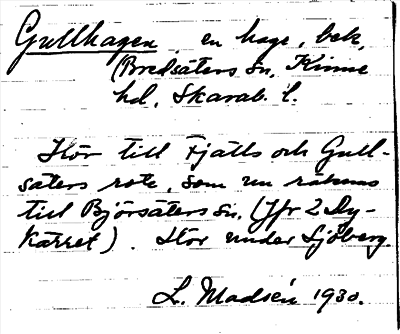 Gullhagen, en hage, bek.
(Bredsäters sn, Kinne
hd, Skarab. l.
Hör till Fjälls och Gull-
säters rote, som nu räknas
till Björsäters sn. (Jfr 2 Dy-
kärret). Hör under Sjöberg.
L. Madsén 1930.